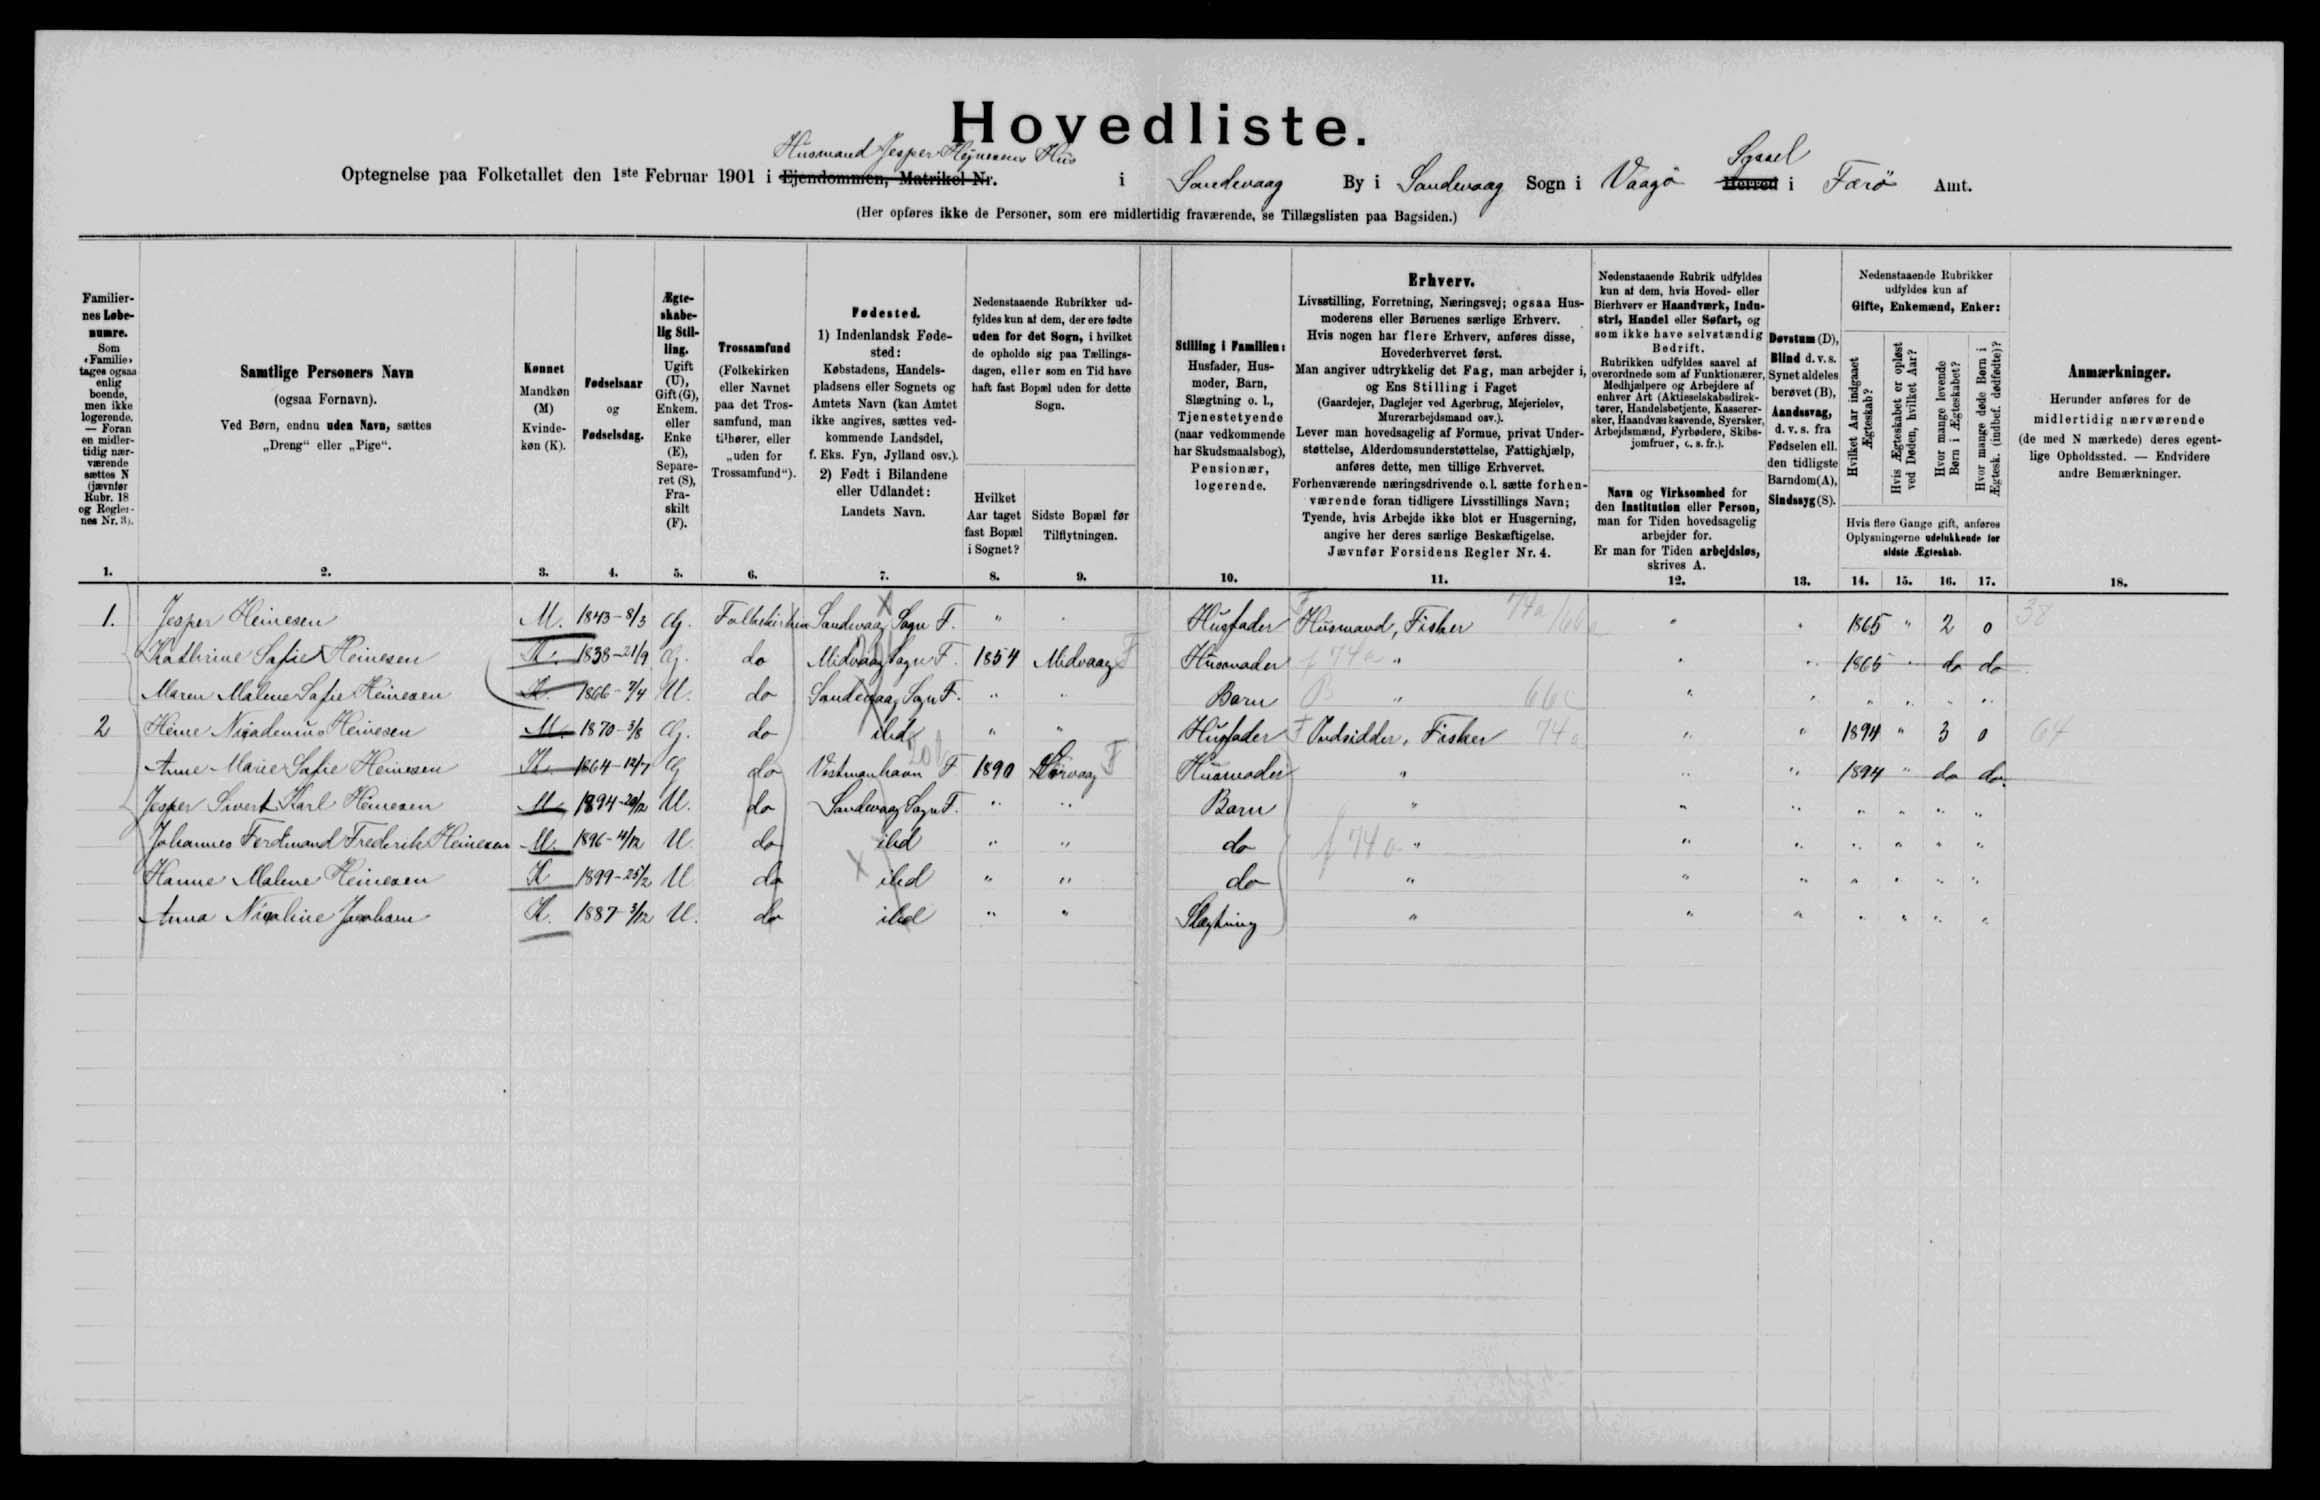 Hovedliste.
Husmand Jesper Hejnesens Hus Syssel
Optegnelse paa Folketallet den 1ste Februar 1901 i Ejendommen, Matrikel-Nr. i Sandevaag By i Sandevaag Sogn i Vaagø Herred i Færø Amt.
(Her opføres ikke de Personer, som ere midlertidig fraværende, se Tillægslisten paa Bagsiden.)
Familiernes Løbenumre.
Som «Familie» tages ogsaa enlig boende, men ikke logerende. — Foran en midlertidig nærværende sættes N (jævnfør Rubr. 18 og Reglernes Nr. 3).
1.
Samtlige Personers Navn
(ogsaa Fornavn).
Ved Børn, endnu uden Navn, sættes
„Dreng“ eller „Pige“.
2.
Kønnet
Mandkøn (M)
Kvindekøn (K).
3.
Fødselsaar
og
Fødselsdag.
4.
Ægteskabelig Stilling.
Ugift (U), Gift (G), Enkem. eller Enke (E), Separeret (S), Fraskilt (F).
5.
Trossamfund
(Folkekirken eller Navnet paa det Trossamfund, man tilhører, eller „uden for Trossamfund“).
6.
Fødested.
1) Indenlandsk Fødested:
Købstadens, Handelspladsens eller Sognets og Amtets Navn (kan Amtet ikke angives, sættes vedkommende Landsdel, f. Eks. Fyn, Jylland osv.).
2) Født i Bilandene eller Udlandet:
Landets Navn.
7.
Nedenstaaende Rubrikker udfyldes kun af dem, der ere fødte uden for det Sogn, i hvilket de opholde sig paa Tællingsdagen, eller som en Tid have haft fast Bopæl uden for dette Sogn.
Hvilket Aar taget fast Bopæl i Sognet?
8.
Sidste Bopæl før Tilflytningen.
9.
Stilling i Familien:
Husfader, Husmoder, Barn, Slægtning o. l., Tjenestetyende (naar vedkommende har Skudsmaalsbog), Pensionær, logerende.
10.
Erhverv.
Livsstilling, Forretning, Næringsvej; ogsaa Husmoderens eller Børnenes særlige Erhverv.
Hvis nogen har flere Erhverv, anføres disse, Hovederhvervet først.
Man angiver udtrykkelig det Fag, man arbejder i, og Ens Stilling i Faget
(Gaardejer, Daglejer ved Agerbrug, Mejerielev, Murerarbejdsmand osv.).
Lever man hovedsagelig af Formue, privat Understøttelse, Alderdomsunderstøttelse, Fattighjælp, anføres dette, men tillige Erhvervet.
Forhenværende næringsdrivende o. l. sætte forhenværende foran tidligere Livsstillings Navn;
Tyende, hvis Arbejde ikke blot er Husgerning, angive her deres særlige Beskæftigelse.
Jævnfør Forsidens Regler Nr. 4.
11.
Nedenstaaende Rubrik udfyldes kun af dem, hvis Hoved- eller Bierhverv er Haandværk, Industri, Handel eller Søfart, og som ikke have selvstændig Bedrift.
Rubrikken udfyldes saavel af overordnede som af Funktionærer, Medhjælpere og Arbejdere af enhver Art (Aktieselskabsdirektører, Handelsbetjente, Kasserersker, Haandværkssvende, Syersker, Arbejdsmænd, Fyrbødere, Skibsjomfruer, o. s. fr.).
Navn og Virksomhed for den Institution eller Person, man for Tiden hovedsagelig arbejder for.
Er man for Tiden arbejdsløs, skrives A.
12.
Døvstum (D),
Blind d. v. s. Synet aldeles berøvet (B),
Aandssvag, d. v. s. fra Fødselen ell. den tidligste Barndom (A),
Sindssyg (S).
13.
Nedenstaaende Rubrikker udfyldes kun af
Gifte, Enkemænd, Enker:
Hvilket Aar indgaaet Ægteskab?
Hvis Ægteskabet er opløst ved Døden, hvilket Aar?
Hvor mange levende Børn i Ægteskabet?
Hvor mange døde Børn i Ægtesk. (indbef. dødfødte)?
Hvis flere Gange gift, anføres Oplysningerne udelukkende for sidste Ægteskab.
14. 15. 16. 17.
Anmærkninger.
Herunder anføres for de midlertidig nærværende (de med N mærkede) deres egentlige Opholdssted. — Endvidere andre Bemærkninger.
18.
1. Jesper Heinesen M. 1843-8/3 G. Folkekirken Sandevaag Sogn F. " " Husfader Husmand, Fisker " " 1865 " 2 0 38
Kathrine Sofie Heinesen K. 1838-21/9 G. do Midvaag Sogn F. 1854 Midvaag F Husmoder f 74a " " " 1865 " do do
Maren Malene Sofie Heinesen K. 1866-7/4 U. do Sandevaag Sogn F. " " Barn " " " " " " "
2 Heine Nicodemus Heinesen M. 1870-3/8 G. do ibd " " Husfader Indsidder, Fisker 74a " " 1894 " 3 0 64
Anne Marie Sofie Heinesen K. 1864-12/7 G do Vestmanhavn F 1890 Sørvaag F Husmoder " " " 1894 " do do.
Jesper Sivert Karl Heinesen M. 1894-20/12 U. do Sandevaag Sogn F. " " Barn " " " " " " "
Johannes Ferdinand Frederik Heinesen M. 1896-4/12 U. do ibd " " do f 74a " " " " " " "
Hanne Malene Heinesen K 1899-25/2 U do ibd " " do " " " " " " "
Anna Nicoline Jacobsen K. 1887-3/12 U. do ibd " " Slægtning " " " " " " "